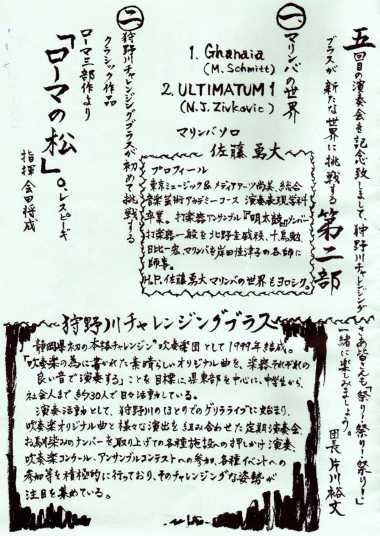 五回目の演奏会を記念致しまして、狩野川チャレンジング
ブラスが新たな世界に挑戦する 第二部
さあ皆さんも「祭り!祭り!祭り!」
一緒に楽しみましょう。
団長 片川裕文
一、マリンバの世界
1. Ghanaia
(M. Schmitt)
2. ULTIMATUM 1
(N.J. Zivkovic)
マリンバソロ
佐藤勇大
プロフィール
東京ミュージック&メディアアーツ尚美、総合
音楽芸術アカデミーコース 演奏表現学科
卒業。打楽器アンサンブル『明太鼓』メンバー
打楽器一般を北野圭威検、十亀勉、
日比一宏、マリンバを岸田佳津子の各師に
師事。
H.P. 佐藤勇大 マリンバの世界もヨロシク。
二、狩野川チャレンジングブラスが初めて挑戦する
クラシック作品
ローマ三部作より
「ローマの松」 O.レスピーギ
指揮 金田将成
狩野川チャレンジングブラス
静岡県初の“本格チャレンジ”吹奏楽団として1999年結成。
「吹奏楽の為に書かれた素晴らしいオリジナル曲を、楽器それぞれの
良い音で演奏する」ことを目標に、県東部を中心に、中学生から、
社会人まで約30人で日々活動している。
演奏活動として、狩野川のほとりでのゲリラライブに始まり、
吹奏楽オリジナル曲と様々な演出を組み合わせた定期演奏会、
お馴染みのナンバーを取り上げての各種施設への押しかけ演奏、
吹奏楽コンクール、アンサンブルコンテストへの参加、各種イベントへの
参加等を積極的に行っており、そのチャレンジングな姿勢が
注目を集めている。